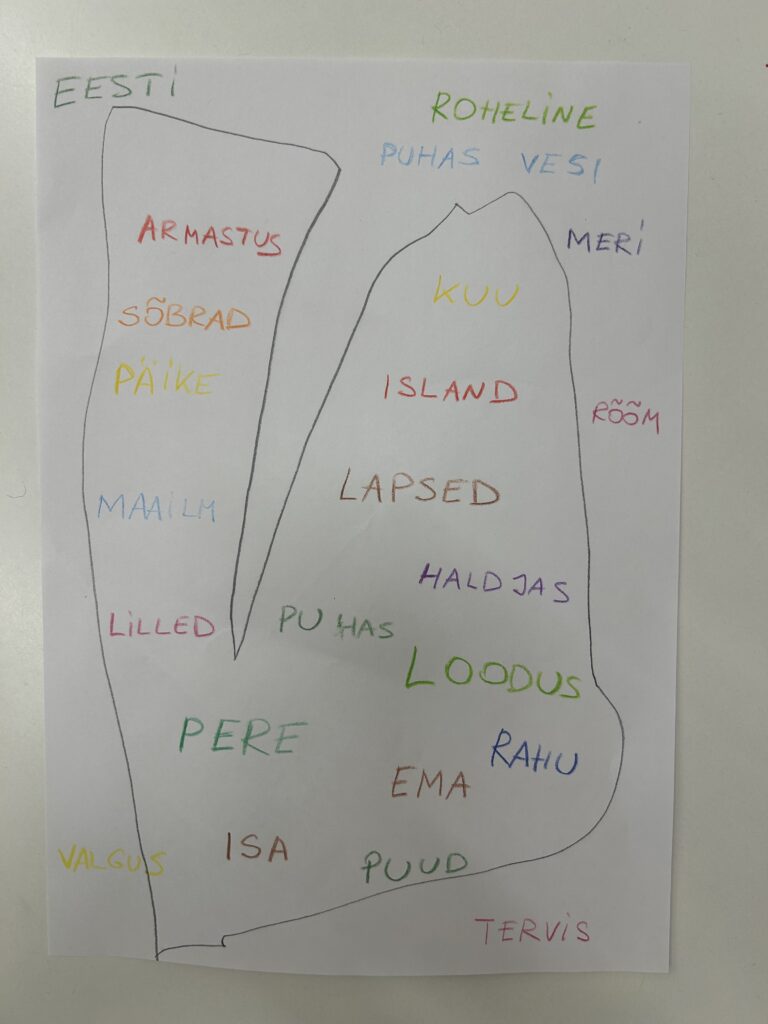 EESTI
ROHELINE
PUHAS VESI
MERI
ARMASTUS
KUU
SÕBRAD
PÄIKE
ISLAND
RÕÕM
LAPSED
MAAILM
HALDJAS
LILLED
PUHAS
LOODUS
PERE
RAHU
EMA
ISA
VALGUS
PUUD
TERVIS